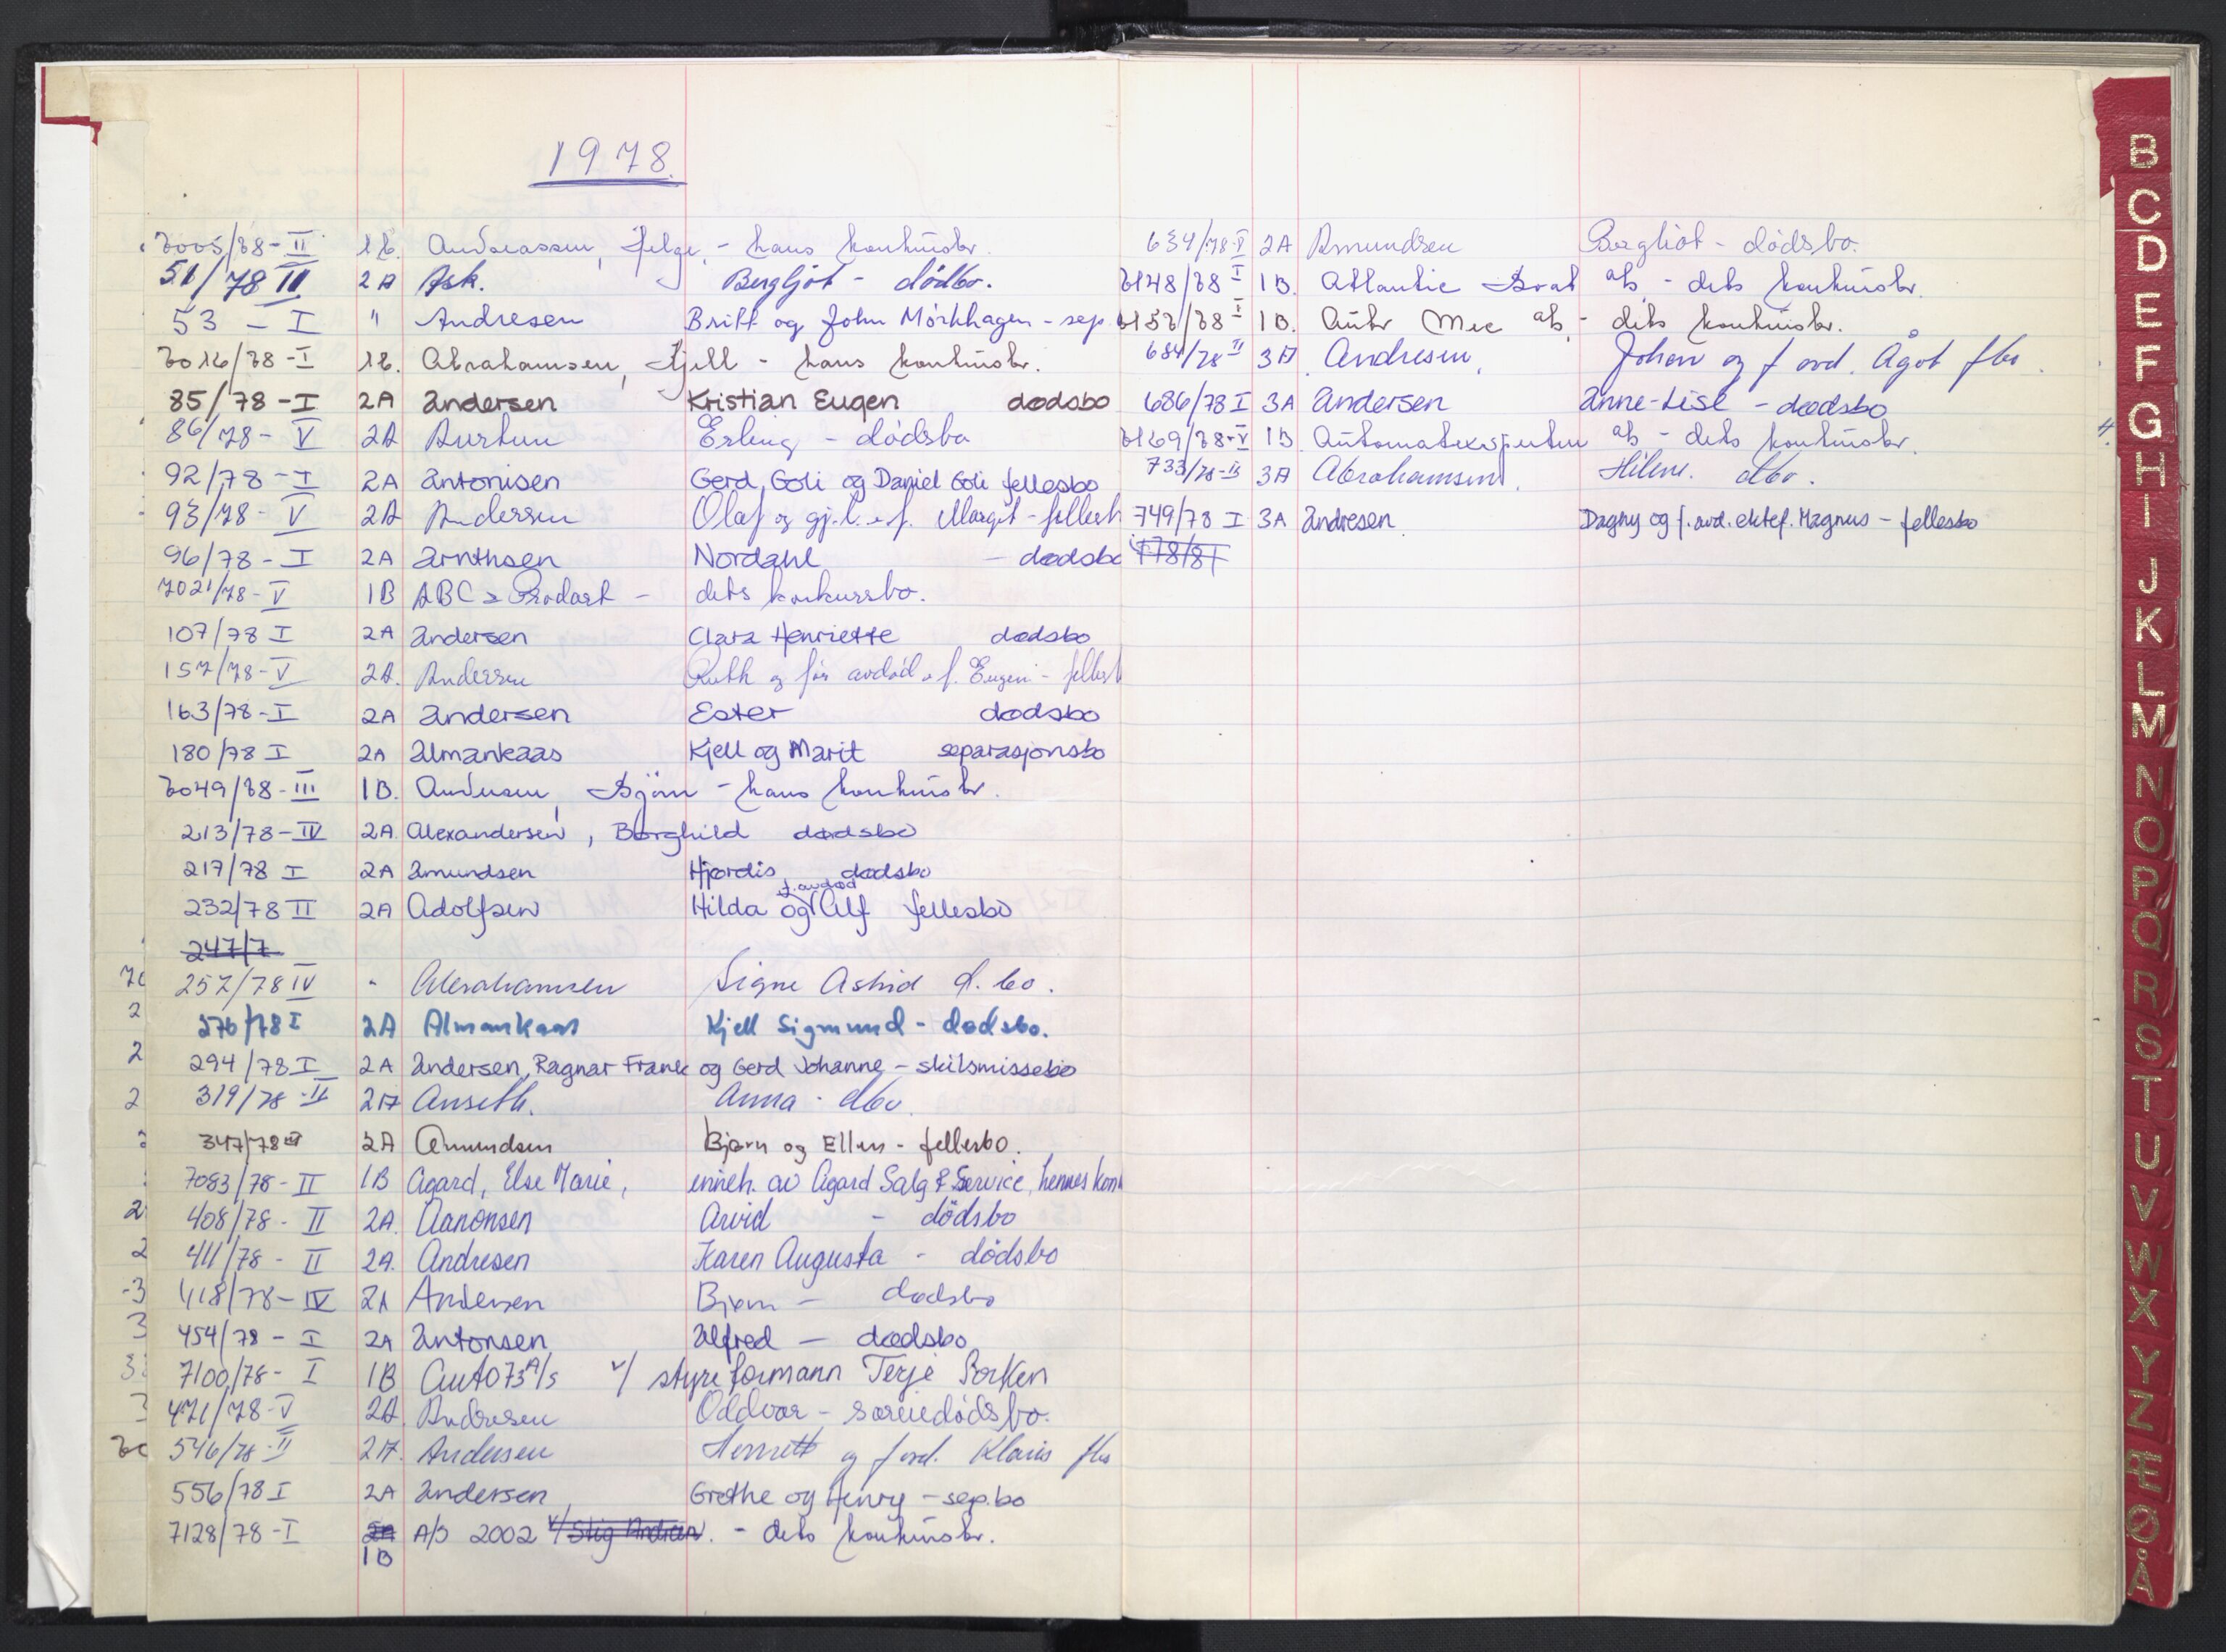 1978.
7005/78-II 1B. Andreassen, Helge, - hans konkursbr.
51/78 II 2A Ask. Bergljot - dödbo.
53 - I " Andresen Britt og John Mörkhagen - sep.
7016/78-I 1B. Abrahamsen, Kjell - hans konkursbr.
85/78-I 2A Andersen Kristian Eugen dødsbo
86/78- V 2A Aurtun Erling - dödsbo
92/78-I 2A Antonisen Gerd, Goli og Daniel Goli fellesbo
93/78- V 2A Andersen Olaf og gj.l.e.f. Margit - fellesb
96/78 - I 2A Arnthsen Nordahl - dødsbo
7021/78- V 1B ABC Prodart - dets konkursbo.
107/78 I 2A Andersen Clara Henriette dødsbo
157/78-V 2A. Andersen Ruth og før avdöd e.f. Eugen - fellesb
163/78-I 2A Andersen Ester dødsbo
180/78 I 2A Almankaas Kjell og Marit separasjonsbo
7049/78-III 1B. Andersen, Björn - hans konkursbr.
213/78-IV 2A. Alexandersen, Borghild dødsbo
217/78 I 2A Amundsen Hjørdis dødsbo
232/78 II 2A Adolfsen Hilda og f. avdød Alf fellesbo
247/7
257/78 IV " Abrahamsen Signe Astrid d. bo.
276/78 I 2A Almankaas Kjell Sigmund - dødsbo.
294/78 I 2A Andersen, Ragnar Frank og Gerd Johanne - skilsmissebo
319/78-II 2A Anseth. Anna - dbo.
347/78 III 2A Amundsen Bjørn og Ellen - fellesbo.
7083/78-II 1B Agard, Else Marie, inneh. av Agard Salg & Service, hennes kon
408/78- II 2A. Aanonsen Arvid - dödsbo
411/78- II 2A. Andresen Karen Augusta - dödsbo
418/78-IV 2A Andersen Bjørn - dødsbo
454/78 - I 2A Antonsen Alfred - dødsbo
7100/78- I 1B Auto 73 A/S v/ styreformann Terje Borken
471/78-V 2A Andresen Oddvar - særeiedödsbo.
546/78-II 2A. Andersen og f avd. Klaus fbo
556/78 I 2A Andersen, Grethe og Henry - sep.bo
7128/78-I 2A A/S 2002 v/ Stig Andreen. - dets konkursbr.
1B
634/78-V 2A Amundsen Bergliot - dödsbo.
7148/78-I 1B. Atlantic Boat a/s - dets konkursbr.
7153/78-I 1B. Auto Mec a/s - dets konkursbr.
684/78 II 3A. Andresen, Johan og f avd. Ågot fbo.
686/78 I 3A Andersen Anne-Lise - dødsbo
7169/78-V 1B Automatekspertene a/s - dets konkursbr.
733/78-II 3A Abrahamsen. Helene. dbo.
749/78 I 3A Andresen. Dagny og f. avd. ektef. Magnus - fellesbo
778/8
B
C
D
E
F
G
H
I
J
K
L
M
N
O
P
Q
R
S
T
U
V
W
X
Y
Z
Æ
Ø
Å